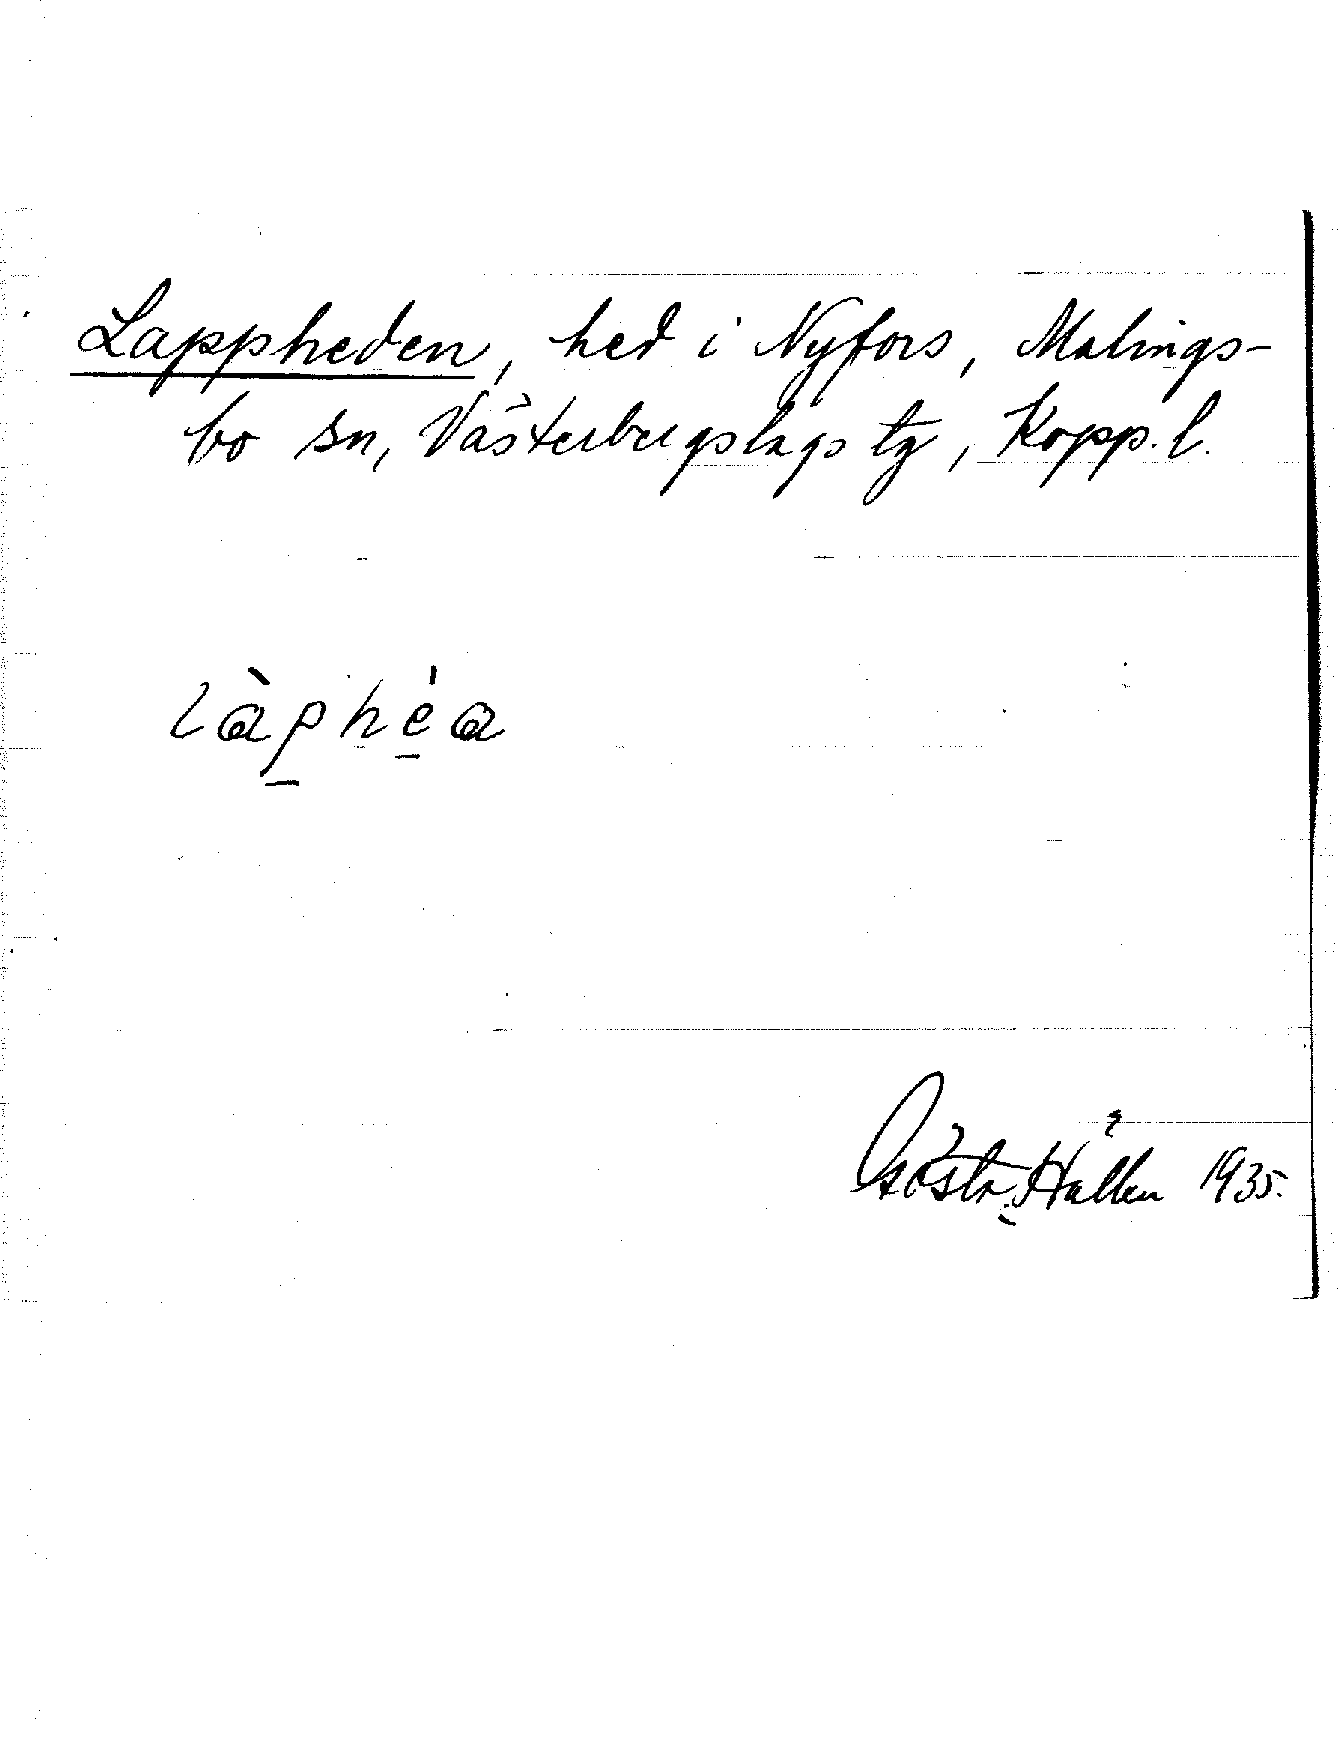 Lappheden, hed i Nyfors, Malings-
bo sn, Västerbergslags tg, Kopp. l.
làp̲hé̲a
Gösta Hållen 1935.